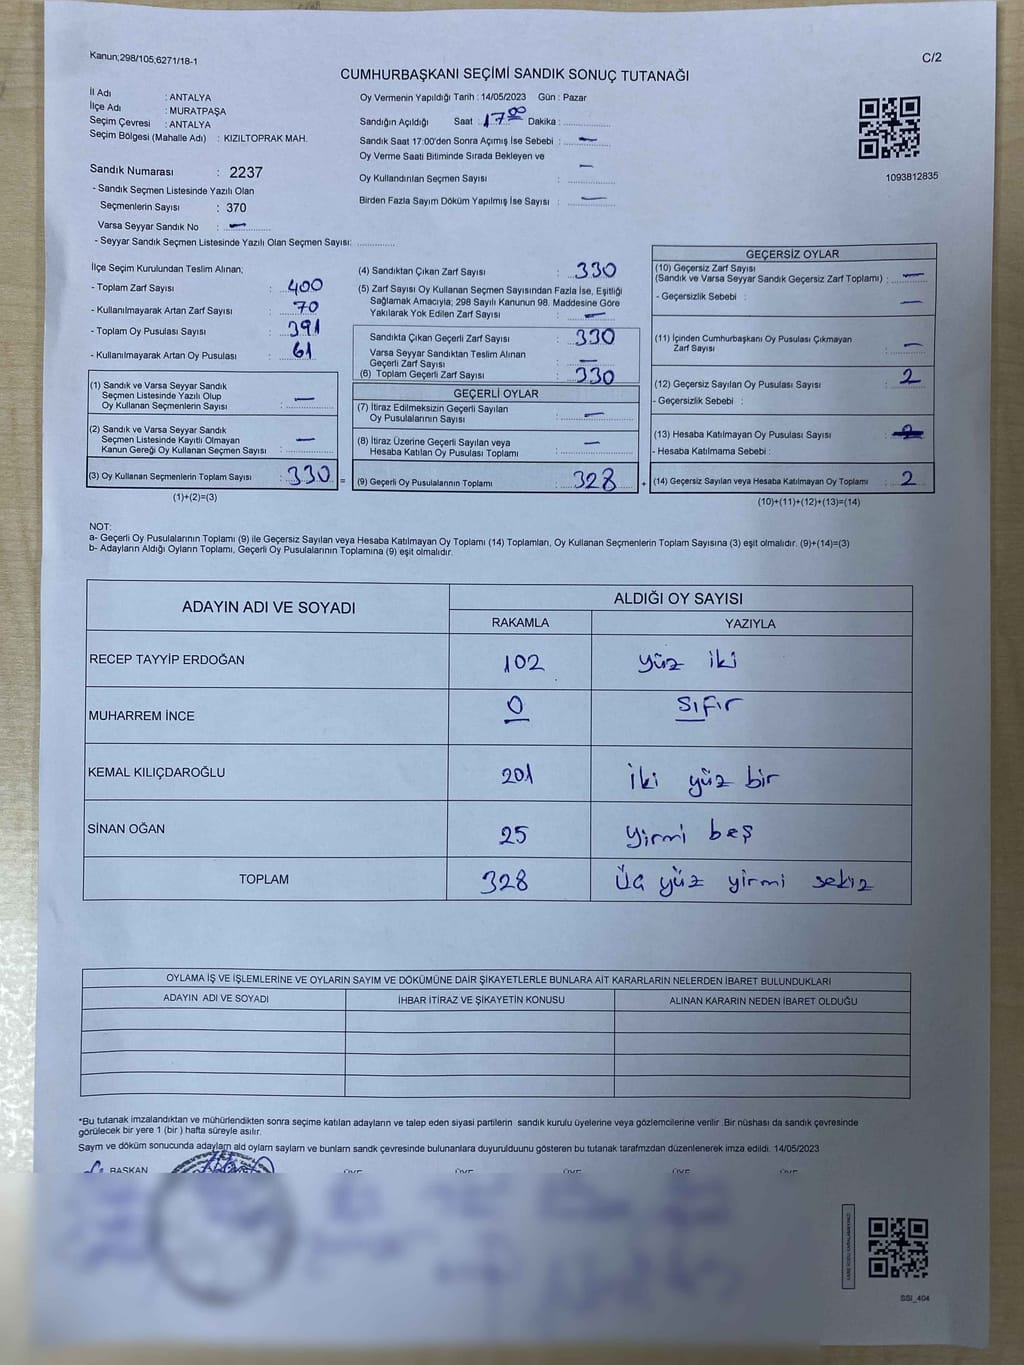 Kanun;298/105,6271/18-1
C/2
CUMHURBAŞKANI SEÇİMİ SANDIK SONUÇ TUTANAĞI
İl Adı : ANTALYA
İlçe Adı : MURATPAŞA
Seçim Çevresi : ANTALYA
Seçim Bölgesi (Mahalle Adı) : KIZILTOPRAK MAH.
Oy Vermenin Yapıldığı Tarih : 14/05/2023 Gün : Pazar
Sandığın Açıldığı Saat : 17 00 Dakika :
Sandık Saat 17:00'den Sonra Açımış İse Sebebi : —
Oy Verme Saati Bitiminde Sırada Bekleyen ve
Oy Kullandırılan Seçmen Sayısı : —
Birden Fazla Sayım Döküm Yapılmış İse Sayısı : —
1093812835
Sandık Numarası : 2237
- Sandık Seçmen Listesinde Yazılı Olan
Seçmenlerin Sayısı : 370
Varsa Seyyar Sandık No : —
- Seyyar Sandık Seçmen Listesinde Yazılı Olan Seçmen Sayısı:
İlçe Seçim Kurulundan Teslim Alınan;
- Toplam Zarf Sayısı : 400
- Kullanılmayarak Artan Zarf Sayısı : 70
- Toplam Oy Pusulası Sayısı : 391
- Kullanılmayarak Artan Oy Pusulası : 61
(1) Sandık ve Varsa Seyyar Sandık
Seçmen Listesinde Yazılı Olup
Oy Kullanan Seçmenlerin Sayısı : —
(2) Sandık ve Varsa Seyyar Sandık
Seçmen Listesinde Kayıtlı Olmayan
Kanun Gereği Oy Kullanan Seçmen Sayısı : —
(3) Oy Kullanan Seçmenlerin Toplam Sayısı : 330
(1)+(2)=(3)
(4) Sandıktan Çıkan Zarf Sayısı : 330
(5) Zarf Sayısı Oy Kullanan Seçmen Sayısından Fazla İse, Eşitliği
Sağlamak Amacıyla; 298 Sayılı Kanunun 98. Maddesine Göre
Yakılarak Yok Edilen Zarf Sayısı : —
Sandıkta Çıkan Geçerli Zarf Sayısı : 330
Varsa Seyyar Sandıktan Teslim Alınan
Geçerli Zarf Sayısı : —
(6) Toplam Geçerli Zarf Sayısı : 330
GEÇERLİ OYLAR
(7) İtiraz Edilmeksizin Geçerli Sayılan
Oy Pusulalarının Sayısı : —
(8) İtiraz Üzerine Geçerli Sayılan veya
Hesaba Katılan Oy Pusulası Toplamı : —
= (9) Geçerli Oy Pusulalarının Toplamı : 328
GEÇERSİZ OYLAR
(10) Geçersiz Zarf Sayısı
(Sandık ve Varsa Seyyar Sandık Geçersiz Zarf Toplamı) : —
- Geçersizlik Sebebi : —
(11) İçinden Cumhurbaşkanı Oy Pusulası Çıkmayan
Zarf Sayısı : —
(12) Geçersiz Sayılan Oy Pusulası Sayısı : 2
- Geçersizlik Sebebi :
(13) Hesaba Katılmayan Oy Pusulası Sayısı :
- Hesaba Katılmama Sebebi :
+ (14) Geçersiz Sayılan veya Hesaba Katılmayan Oy Toplamı : 2
(10)+(11)+(12)+(13)=(14)
NOT:
a- Geçerli Oy Pusulalarının Toplamı (9) ile Geçersiz Sayılan veya Hesaba Katılmayan Oy Toplamı (14) Toplamları, Oy Kullanan Seçmenlerin Toplam Sayısına (3) eşit olmalıdır. (9)+(14)=(3)
b- Adayların Aldığı Oyların Toplamı, Geçerli Oy Pusulalarının Toplamına (9) eşit olmalıdır.
ADAYIN ADI VE SOYADI
ALDIĞI OY SAYISI
RAKAMLA YAZIYLA
RECEP TAYYİP ERDOĞAN 102 yüz iki
MUHARREM İNCE 0 sıfır
KEMAL KILIÇDAROĞLU 201 iki yüz bir
SİNAN OĞAN 25 yirmi beş
TOPLAM 328 üç yüz yirmi sekiz
OYLAMA İŞ VE İŞLEMLERİNE VE OYLARIN SAYIM VE DÖKÜMÜNE DAİR ŞİKAYETLERLE BUNLARA AİT KARARLARIN NELERDEN İBARET BULUNDUKLARI
ADAYIN ADI VE SOYADI İHBAR İTİRAZ VE ŞİKAYETİN KONUSU ALINAN KARARIN NEDEN İBARET OLDUĞU
*Bu tutanak imzalandıktan ve mühürlendikten sonra seçime katılan adayların ve talep eden siyasi partilerin sandık kurulu üyelerine veya gözlemcilerine verilir .Bir nüshası da sandık çevresinde
görülecek bir yere 1 (bir ) hafta süreyle asılır.
Sayım ve döküm sonucunda adayların ald oyların sayların ve bunların sandk çevresinde bulunanlara duyurulduunu gösteren bu tutanak tarafmzdan düzenlenerek imza edildi. 14/05/2023
BAŞKAN ÜYE ÜYE ÜYE ÜYE ÜYE
SSI_404